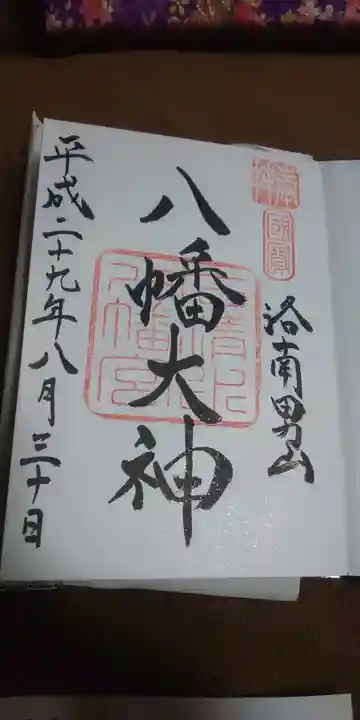 國寶
洛南男山
八幡大神
石清水
八幡宮
平成二十九年八月三十日